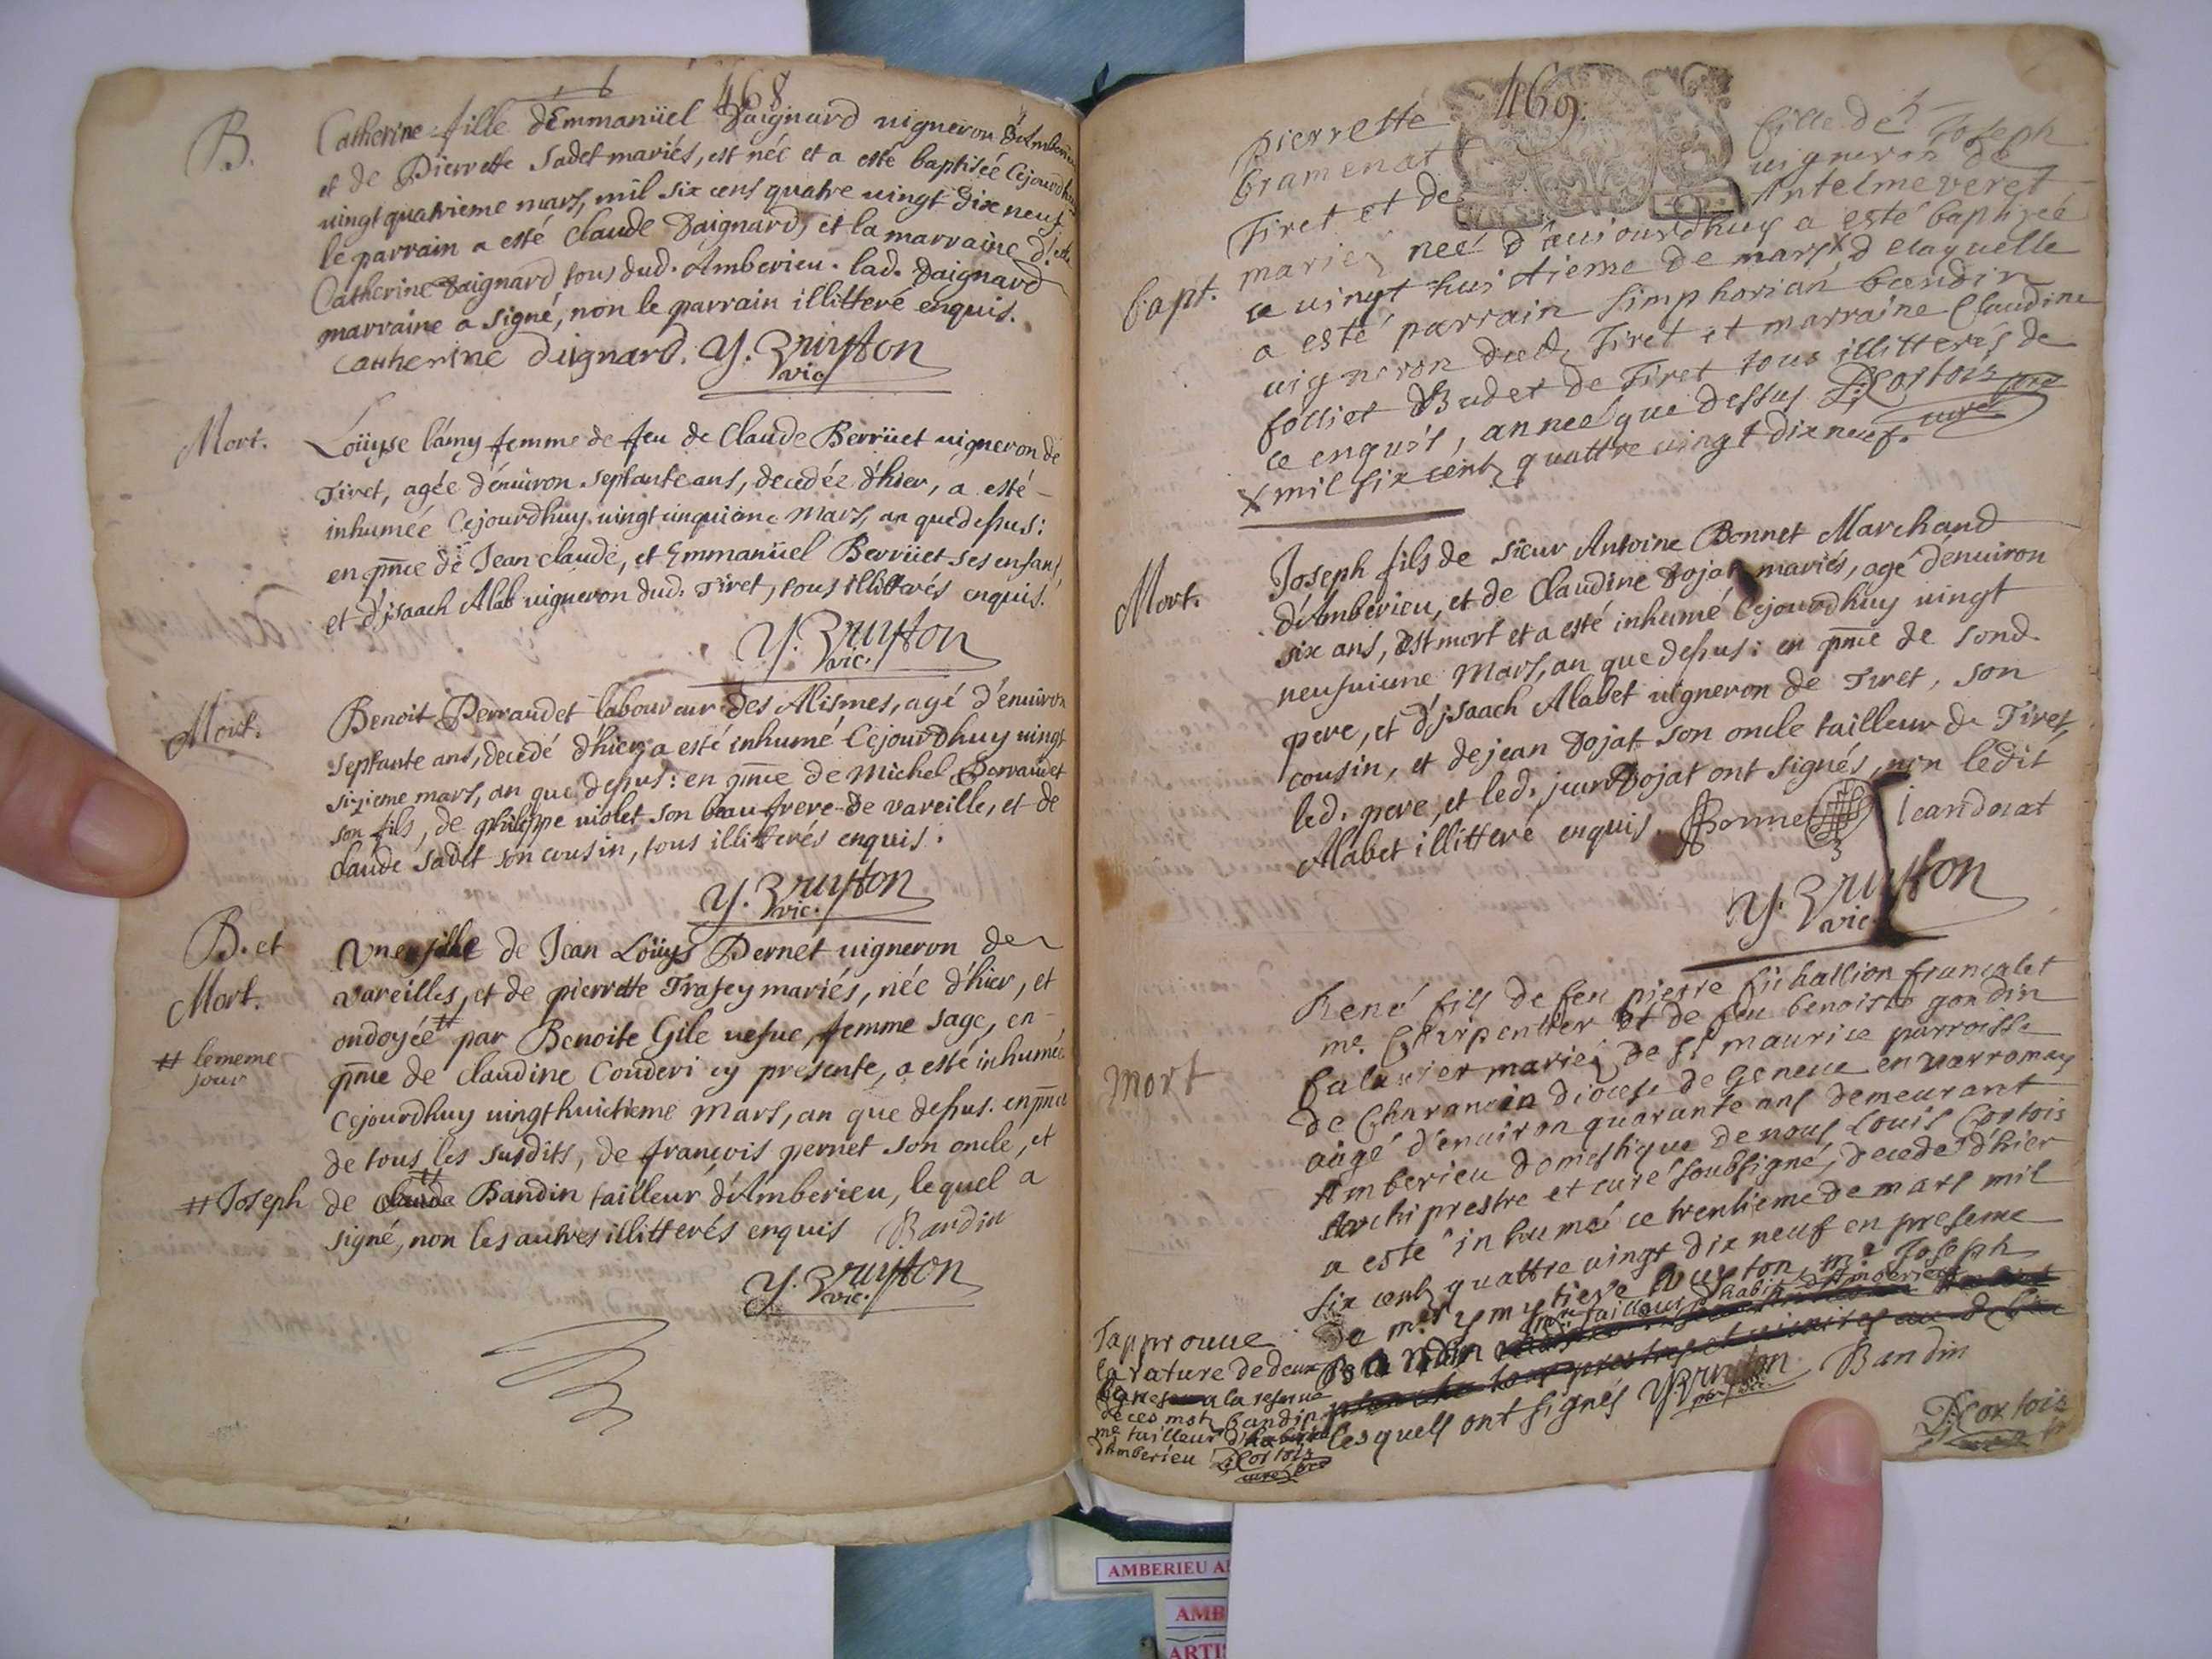 468
B.
Catherine fille d'Emmanüel Daignard uigneron d'Amberieu
et de Pierrette Sadet mariés, est née et a esté baptisée Cejourdhuy
uingt quatrieme mars, mil six cens quatre uingt dix neuf
le parrain a esté Claude Daignard, et la marraine d.elle
Catherine Daignard tous dud. Amberieu. lad. Daignard
marraine a signé, non le parrain illitteré enquis.
Catherine daignard. Y. Bruyston
vic
Mort.
Loüyse lámy femme de feu de Claude Berrüet uigneron de
Tiret, agée d'enuiron septante ans, decedée d'hier, a esté
inhumée Cejourdhuy uingt cinquieme Mars, an que dessus:
en pnce de Jean claude, et Emmanüel Berrüet ses enfans,
et d'jsaach Alab uigneron dud. Tiret, tous illitterés enquis.
Y. Bruyston
vic.
Mort.
Benoit Perraudet laboureur des Alismes, agé d'enuiron
septante ans, decedé d'hier, a esté inhumé Cejourdhuy uingt
sixieme mars, an que dessus: en pnce de Michel Perraudet
son fils, de philippe uiolet son beau frere de vareille, et de
Claude Sadet son cousin, tous illitterés enquis.
Y. Bruyston
vic.
B. et
Mort.
# le meme
jour
# Joseph
Vne fille de Jean Loüys Pernet uigneron de
Vareilles, et de pierrette Trafey mariés, née d'hier, et
ondoyée # par Benoite Gile uefue, femme sage, en
pnce de Claudine Couderi cy presente, a esté inhumée
Cejourdhuy uingt huictieme Mars, an que dessus. en pnce
de tous les susdits, de françois pernet son oncle, et
de Claude # Bandin tailleur d'Amberieu, lequel a
signé, non les autres illitterés enquis Bandin
Y. Bruyston
vic.
469.
bapt.
Pierrette fille de Joseph
bramenat uigneron de
Tiret et de Antelme veret
mariez neé d'auiourdhuy a esté baptizeé
ce uingt huitieme de mars X delaquelle
a esté parrain simphorian bandin
uigneron dud Tiret et marraine Claudine
folliet Budet de Tiret tous illitterés de
ce enquis, anneé que dessus L Cortois pre
curé
X mil six centz quattre uingt dix neuf.
Mort.
Joseph fils de sieur Antoine Bonnet Marchand
d'Amberieu, et de Claudine Dojat mariés, agé d'enuiron
six ans, est mort et a esté inhumé Cejourdhuy uingt
neufuieme Mars, an que dessus: en pnce de sond.
pere, et d'jsaach Alabet uigneron de Tiret, son
cousin, et de jean Dojat son oncle tailleur de Tiret,
led. pere, et led. jean Dojat ont signés, non ledit
Alabet illitteré enquis. Bonnet Jean doiat
Y. Bruyston
vic.
mort
René fils de feu pierre
me. Charpentier et de feu benoiste gondin
mariez de st maurice parroisse
de Charancin diocese de Geneue en varromey
aâgé d'enuiron quarante ans demeurant
Amberieu domestique de nous Louis Cortois
Archiprestre et curé soubsigné, decedé d'hier
a esté inhumé ce trentieme de mars mil
six centz quattre uingt dix neuf en presence
de mre ymytiere Bruyston, me Joseph
me tailleur d'habit d'Amberieu
Bandin
lesquels ont signés Y. Bruyston Bandin
L Cortois
Japprouue
la rature de deux
lignes a la reserue
de ces motz bandin
me tailleur d'habit
d'Amberieu L Cortois
curé pre
AMBERIEU A
AMB
ARTI